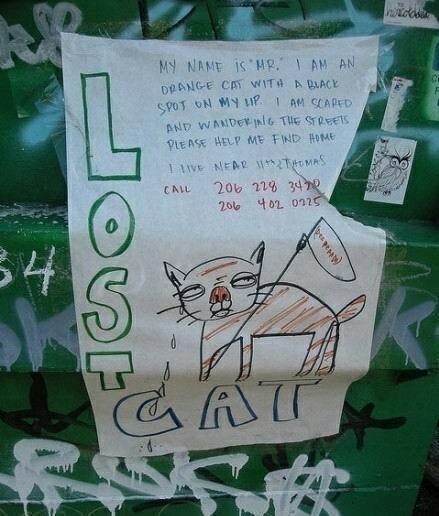 LOST
MY NAME IS "MR." I AM AN
ORANGE CAT WITH A BLACK
SPOT ON MY LIP. I AM SCARED
AND WANDERING THE STREETS
PLEASE HELP ME FIND HOME
I LIVE NEAR 11TH & THOMAS
CALL 206 228
206 402 0225
CAT
34